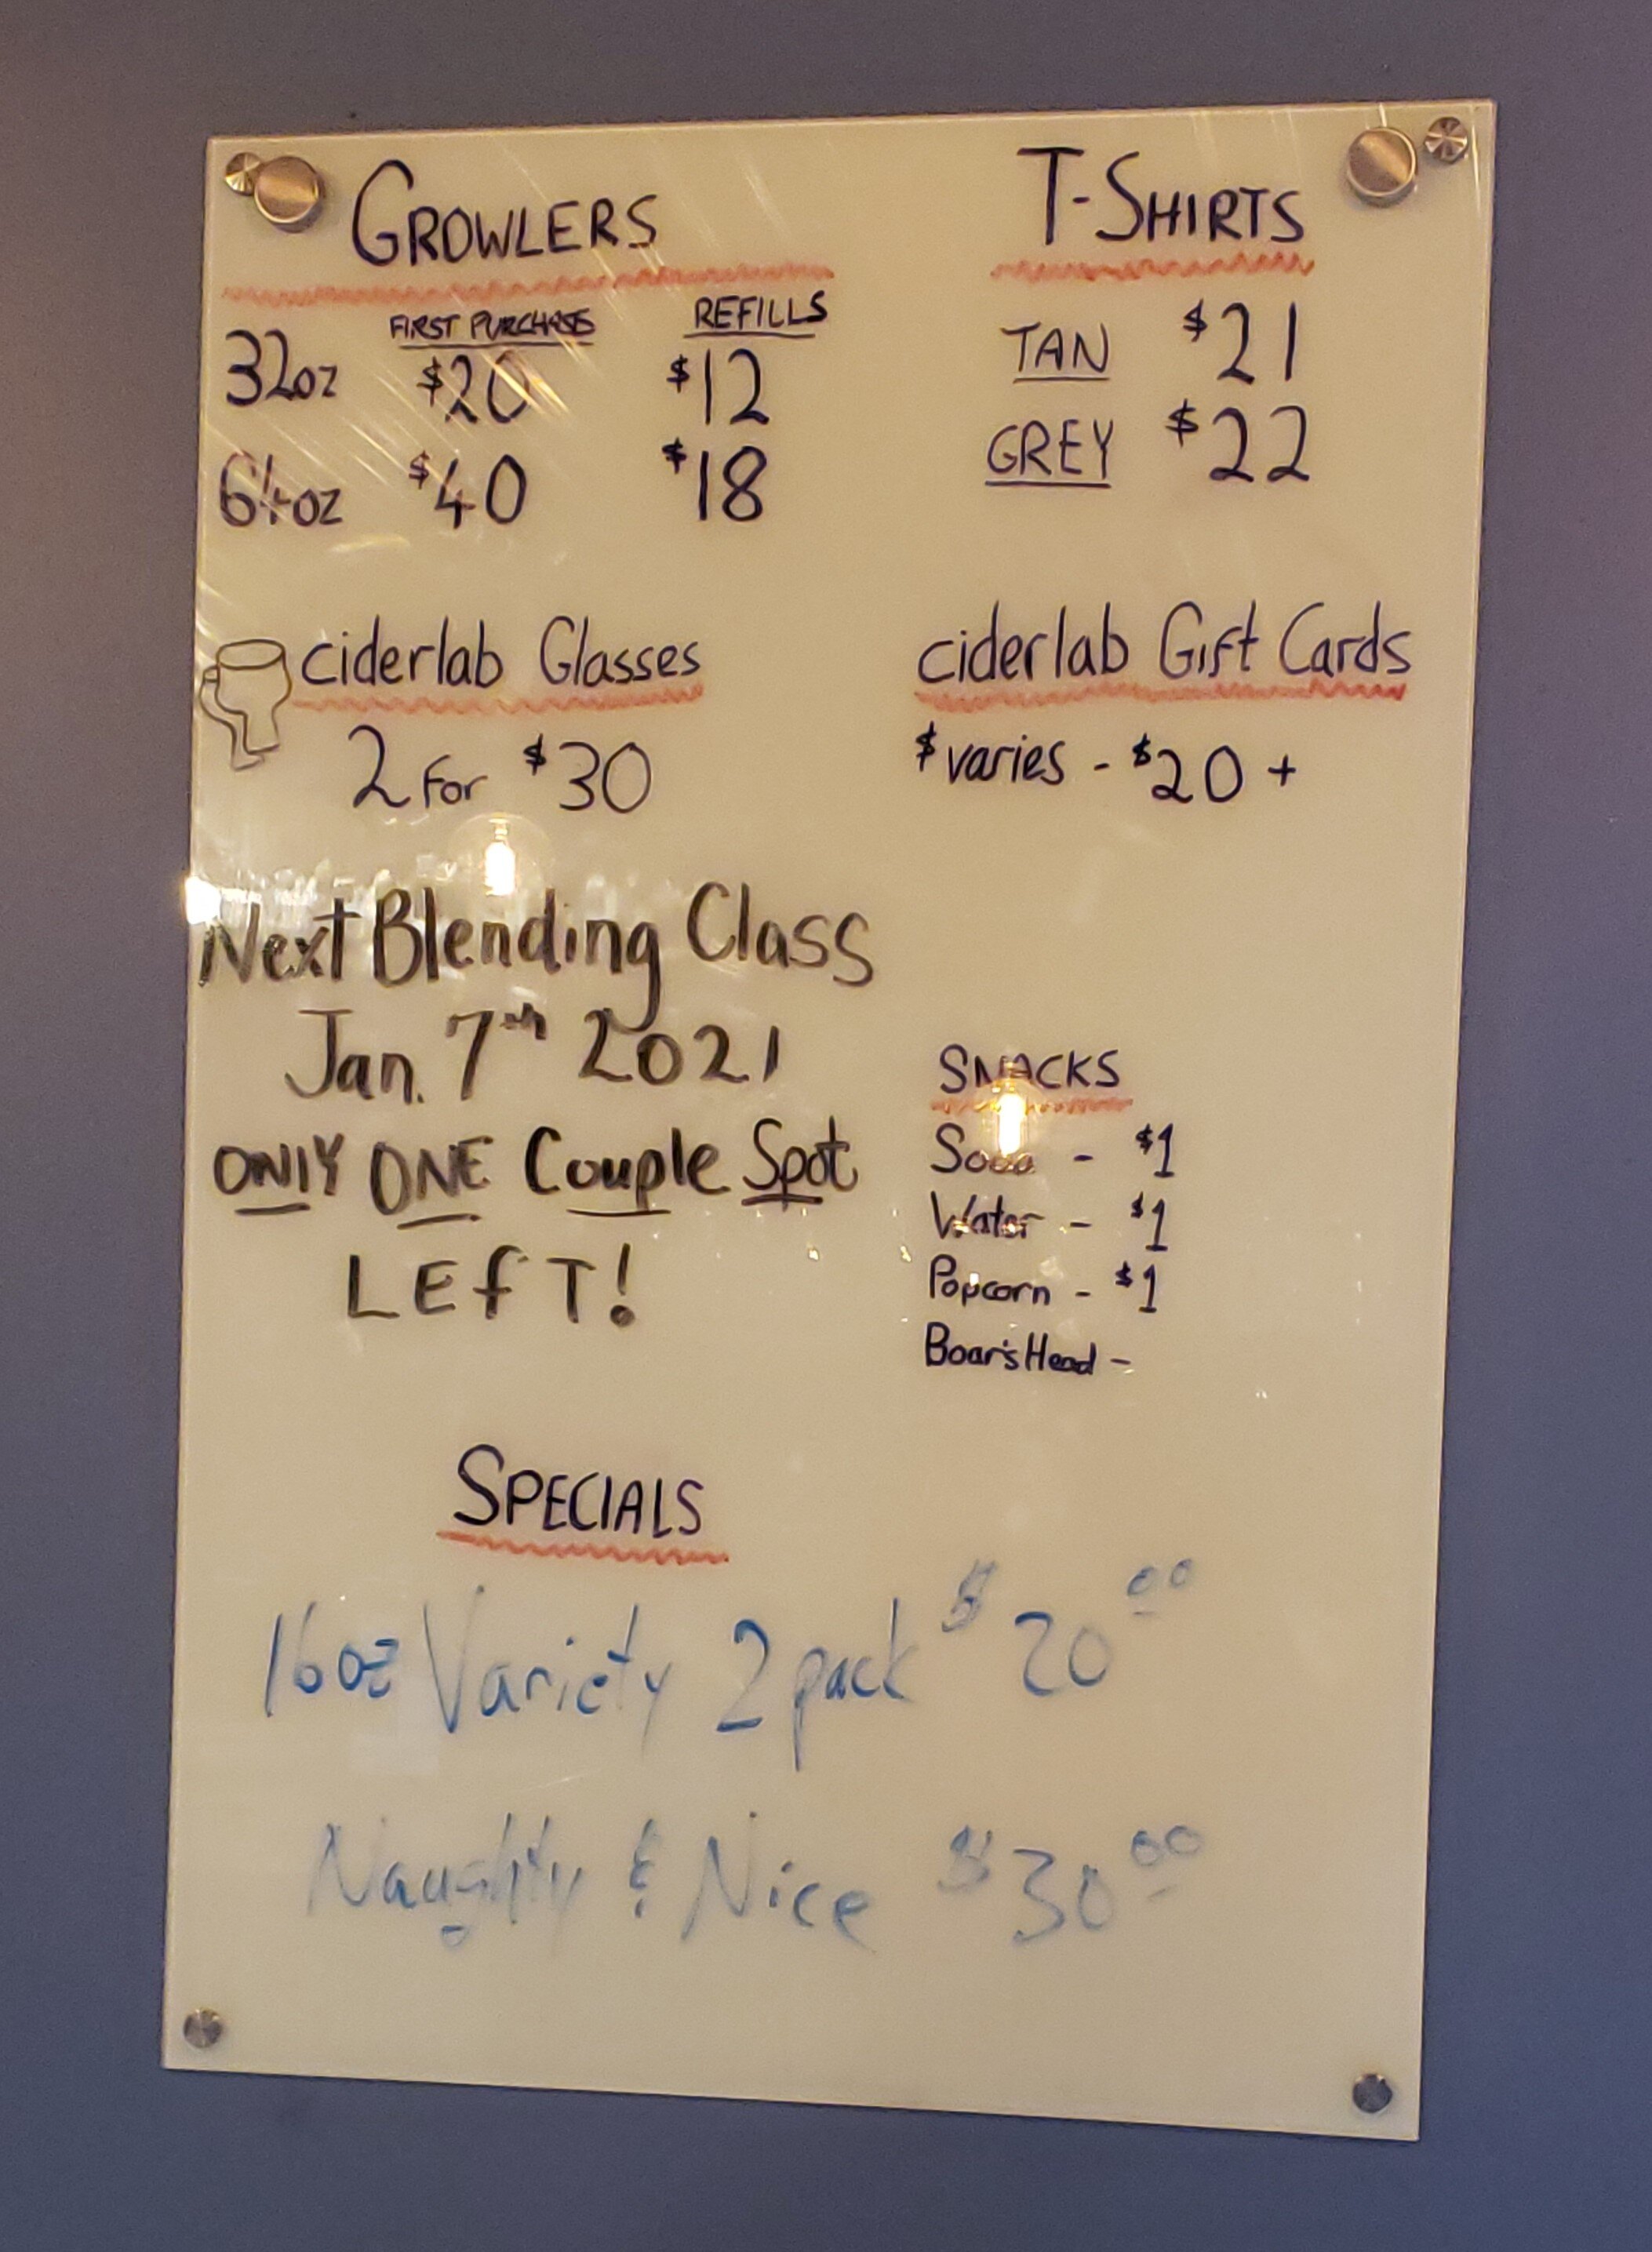 GROWLERS
FIRST PURCHASE REFILLS
32oz $20 $12
64oz $40 $18
T-SHIRTS
TAN $21
GREY $22
ciderlab Glasses
2 For $30
ciderlab Gift Cards
$varies - $20 +
Next Blending Class
Jan. 7th 2021
ONLY ONE Couple Spot
LEfT!
SNACKS
Soda - $1
Water - $1
Popcorn - $1
Boar's Head -
SPECIALS
16oz Variety 2 pack $20.00
Naughty & Nice $30.00